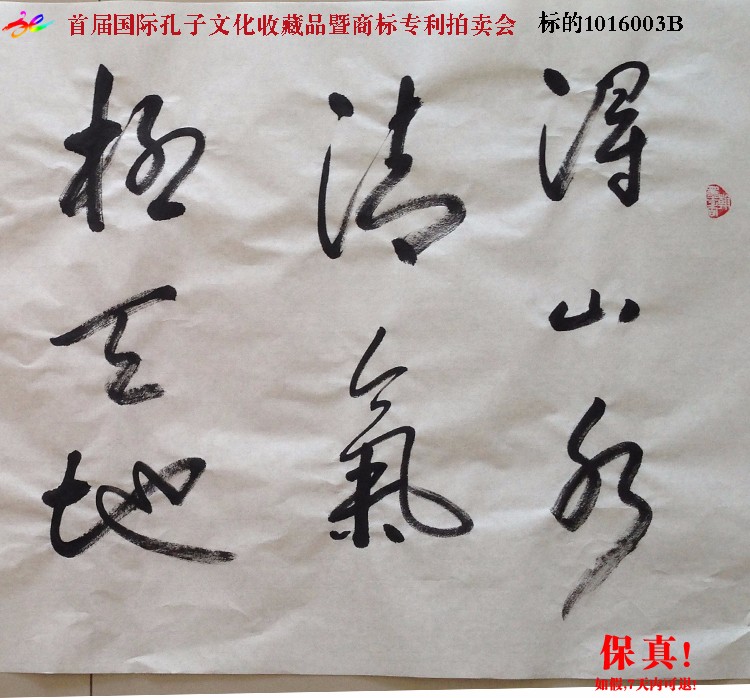 首届国际孔子文化收藏品暨商标专利拍卖会 标的1016003B
得山水
清氣
極天地
保真!
如假,7天内可退!